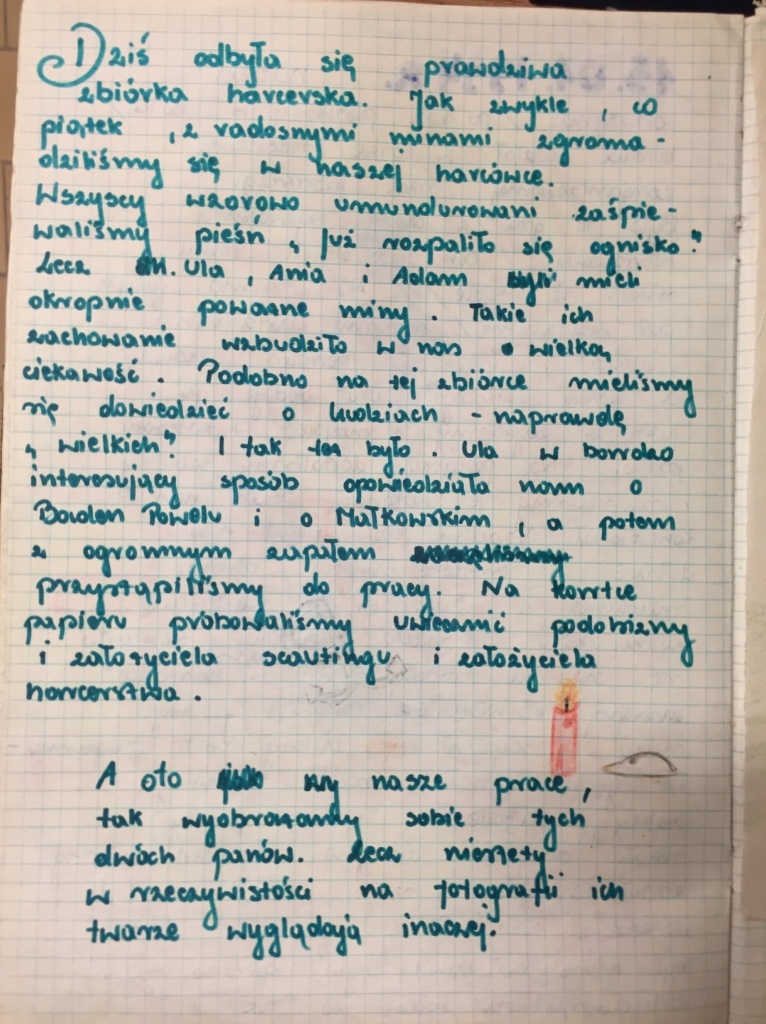 Dziś odbyła się prawdziwa
zbiórka harcerska. Jak zwykle, co
piątek, z radosnymi minami zgroma-
dziliśmy się w naszej harcówce.
Wszyscy wzorowo umundurowani zaśpie-
waliśmy pieśń „Już rozpaliło się ognisko."
Lecz Ula, Ania i Adam mieli
okropnie poważne miny. Takie ich
zachowanie wzbudziło w nas wielką
ciekawość. Podobno na tej zbiórce mieliśmy
się dowiedzieć o ludziach - naprawdę
„wielkich". I tak też było. Ula w bardzo
interesujący sposób opowiedziała nam o
Baden Powelu i o Małkowskim, a potem
z ogromnym zapałem
przystąpiliśmy do pracy. Na kartce
papieru próbowaliśmy uwiecznić podobizny
i założyciela scautingu i założyciela
harcerstwa.
A oto nasze prace,
tak wyobrażamy sobie tych
dwóch panów. Lecz niestety
w rzeczywistości na fotografii ich
twarze wyglądają inaczej.